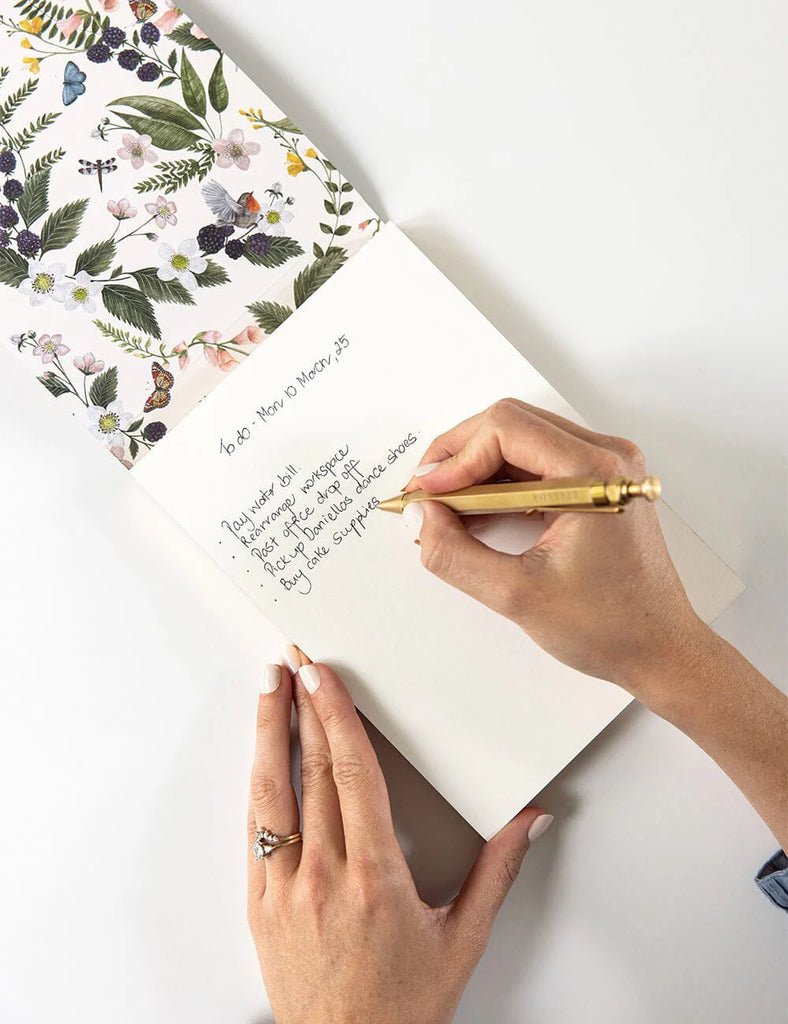 To do - Mon 10 March, 25
• Pay water bill.
• Rearrange workspace
• Post office drop off
• Pick up Daniella's dance shoes.
• Buy cake supplies